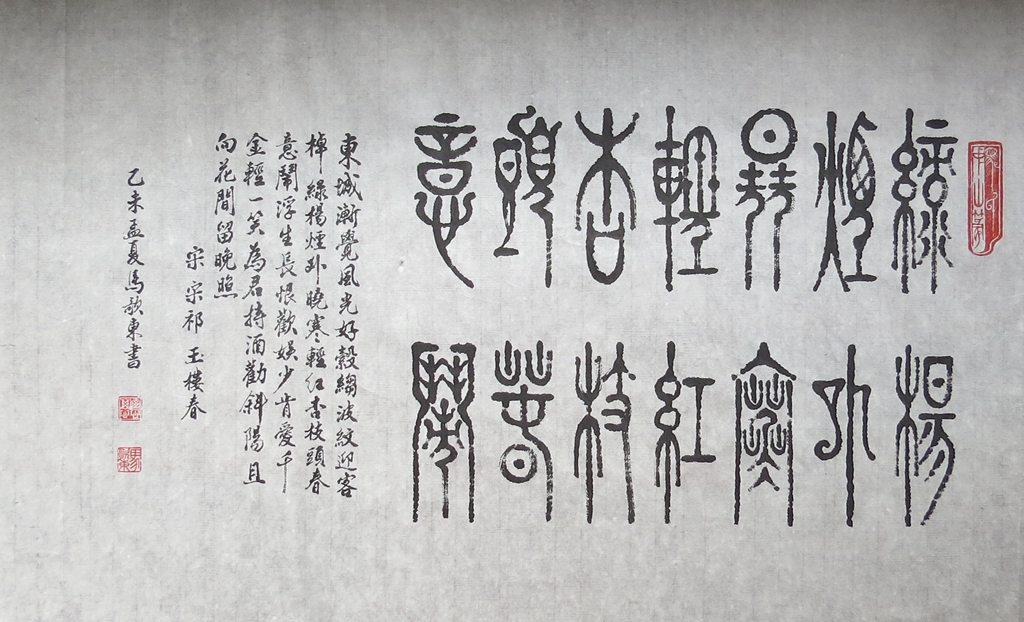 綠楊
煙外
曉寒
輕紅
杏枝
頭春
意鬧
東城漸覺風光好縠縐波紋迎客
棹綠楊煙外曉寒輕紅杏枝頭春
意鬧浮生長恨歡娛少肯愛千
金輕一笑為君持酒勸斜陽且
向花間留晚照
宋宋祁玉樓春
乙未孟夏馬歌東書